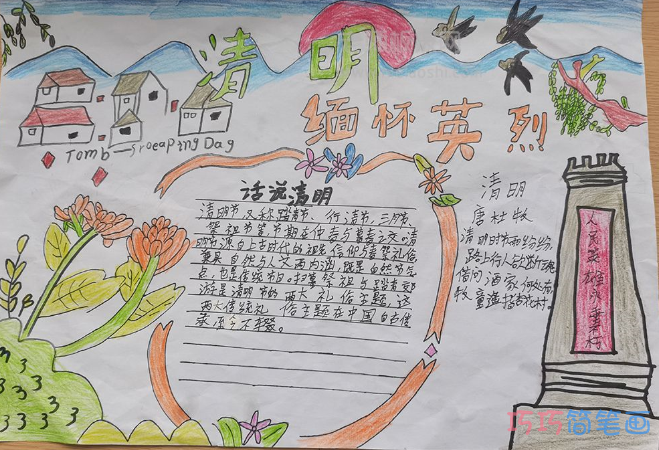 清明
缅怀英烈
Tomb—Sroeaping Day
话说清明
清明节又称踏青节、行清节、三月节、
祭祖节等节期在仲春与暮春之交。清
明节源自上古时代的祖先信仰与春祭礼俗
兼具自然与人文两内涵既是自然节气
点，也是传统节日。扫墓祭祖与踏青郊
游是清明节的两大礼俗主题，这
两大传统礼俗主题在中国自古传
承至今不辍。
清明
唐杜牧
清明时节雨纷纷，
路上行人欲断魂
借问酒家何处有
牧童遥指杏花村。
人民英雄永垂不朽
巧巧简笔画